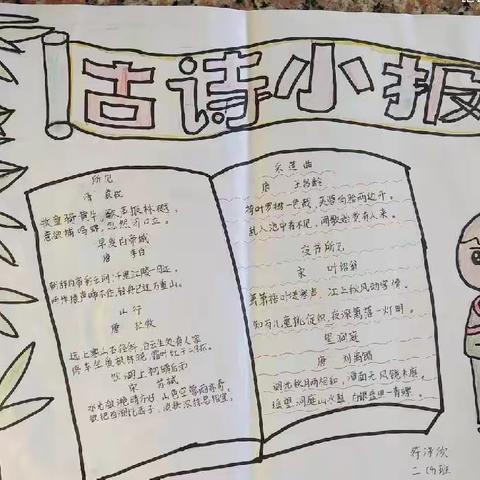 古诗小报
所见
清 袁枚
牧童骑黄牛,歌声振林樾,
意欲捕鸣蝉,忽然闭口立。
早发白帝城
唐 李白
朝辞白帝彩云间,千里江陵一日还。
两岸猿声啼不住,轻舟已过万重山。
山行
唐 杜牧
远上寒山石径斜,白云生处有人家
停车坐爱枫林晚,霜叶红于二月花。
饮湖上初晴后雨
宋 苏轼
水光潋滟晴方好,山色空蒙雨亦奇,
欲把西湖比西子,淡妆浓抹总相宜。
采莲曲
唐 王昌龄
荷叶罗裙一色裁,芙蓉向脸两边开。
乱入池中看不见,闻歌始觉有人来。
夜书所见
宋 叶绍翁
萧萧梧叶送寒声,江上秋风动客情。
知有儿童挑促织,夜深篱落一灯明。
望洞庭
唐 刘禹锡
湖光秋月两相和,潭面无风镜未磨,
遥望洞庭山水翠,白银盘里一青螺。
二(5)班